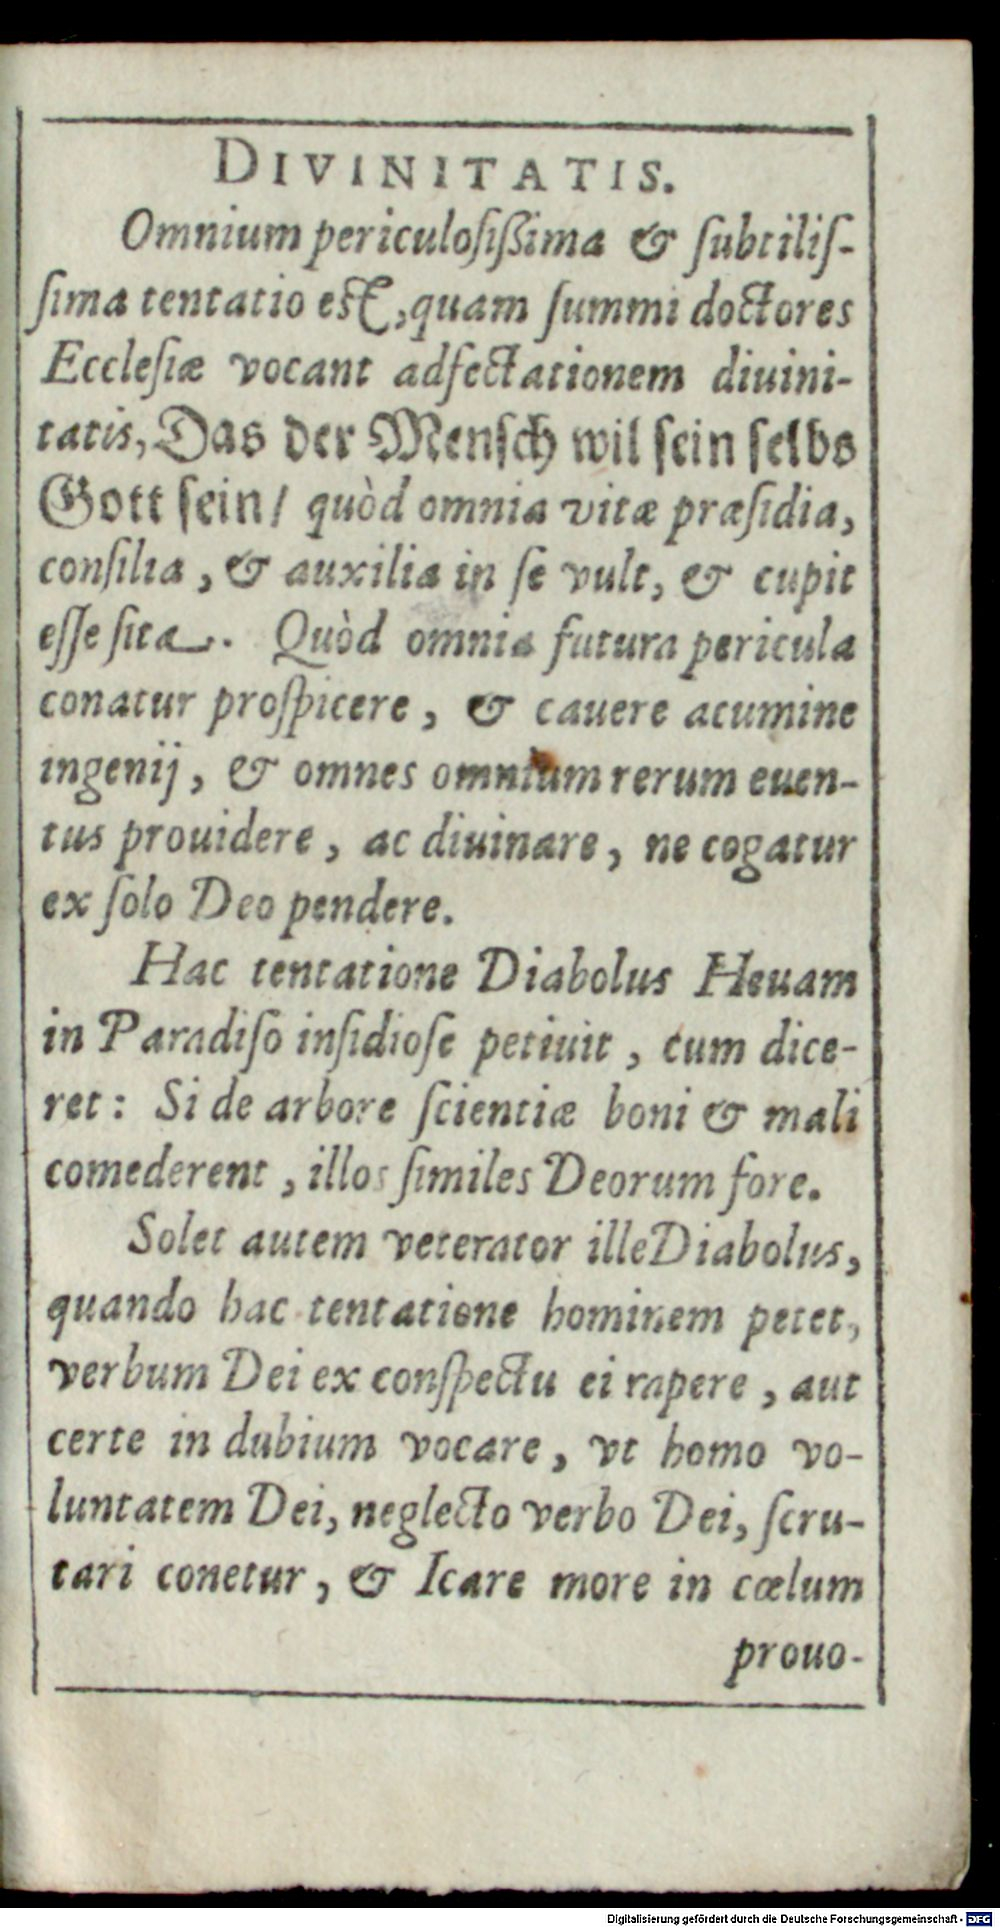 DIVINITATIS.
Omnium periculosißima & subtilis-
sima tentatio est, quam summi doctores
Ecclesiæ vocant adfectationem diuini-
tatis, Das der Mensch wil sein selbs
Gott sein/ quòd omnia vitæ præsidia,
consilia, & auxilia in se vult, & cupit
esse sita. Quòd omnia futura pericula
conatur prospicere, & cauere acumine
ingenij, & omnes omnium rerum euen-
tus prouidere, ac diuinare, ne cogatur
ex solo Deo pendere.
Hac tentatione Diabolus Heuam
in Paradiso insidiose petiuit, cum dice-
ret: Si de arbore scientiæ boni & mali
comederent, illos similes Deorum fore.
Solet autem veterator ille Diabolus,
quando hac tentatione hominem petet,
verbum Dei ex conspectu ei rapere, aut
certe in dubium vocare, vt homo vo-
luntatem Dei, neglecto verbo Dei, scru-
tari conetur, & Icare more in cœlum
prouo-
Digitalisierung gefördert durch die Deutsche Forschungsgemeinschaft - DFG